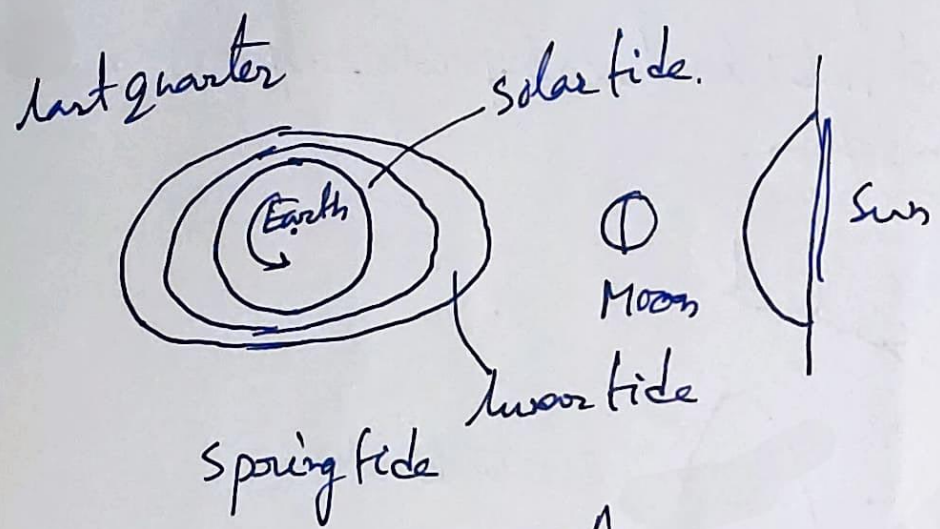 last quarter
solar tide.
Earth
Sun
Moon
lunar tide
Spring tide